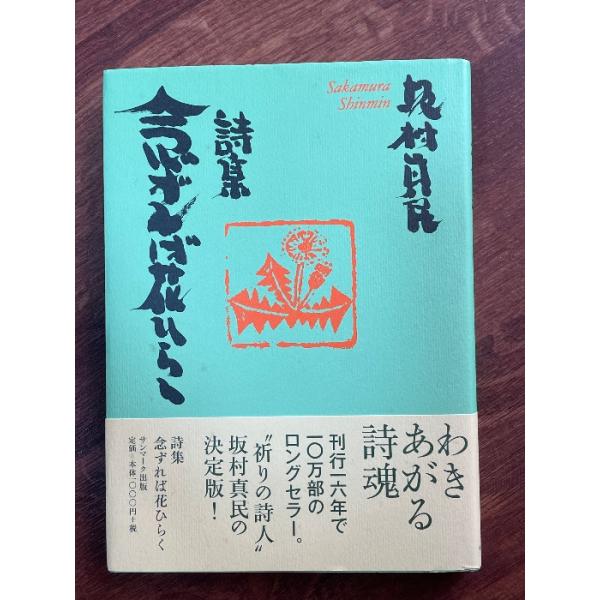 坂村真民
Sakamura
Shinmin
詩集
念ずれば花ひらく
わき
あがる
詩魂
刊行一六年で
一〇万部の
ロングセラー。
“祈りの詩人”
坂村真民の
決定版!
詩集
念ずれば花ひらく
サンマーク出版
定価=本体一〇〇〇円+税